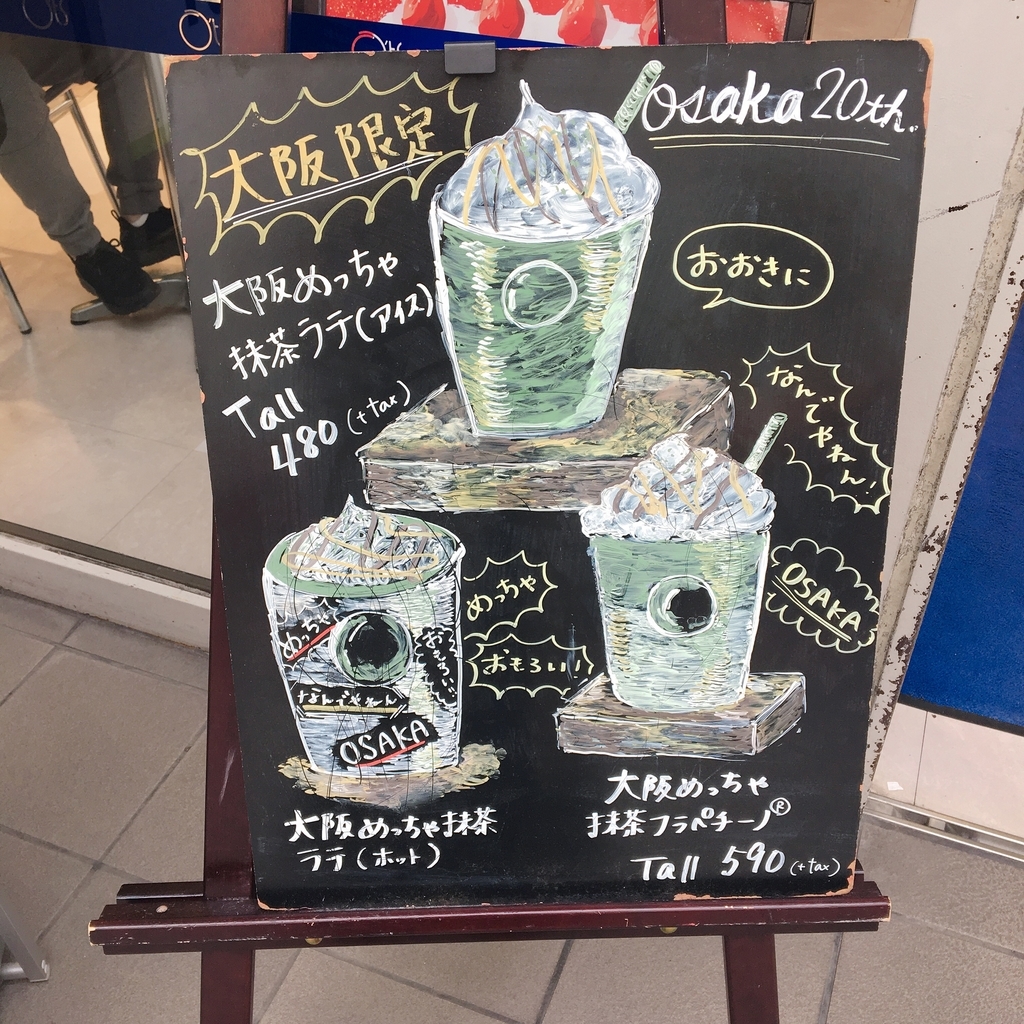 大阪限定
Osaka 20th.
大阪めっちゃ
抹茶ラテ(アイス)
Tall
480 (+tax)
おおきに
なんでやねん!
OSAKA
めっちゃ
おもろい!
めっちゃ
おもろい!
なんでやねん
OSAKA
大阪めっちゃ抹茶
ラテ(ホット)
大阪めっちゃ
抹茶フラペチーノ®
Tall 590 (+tax)